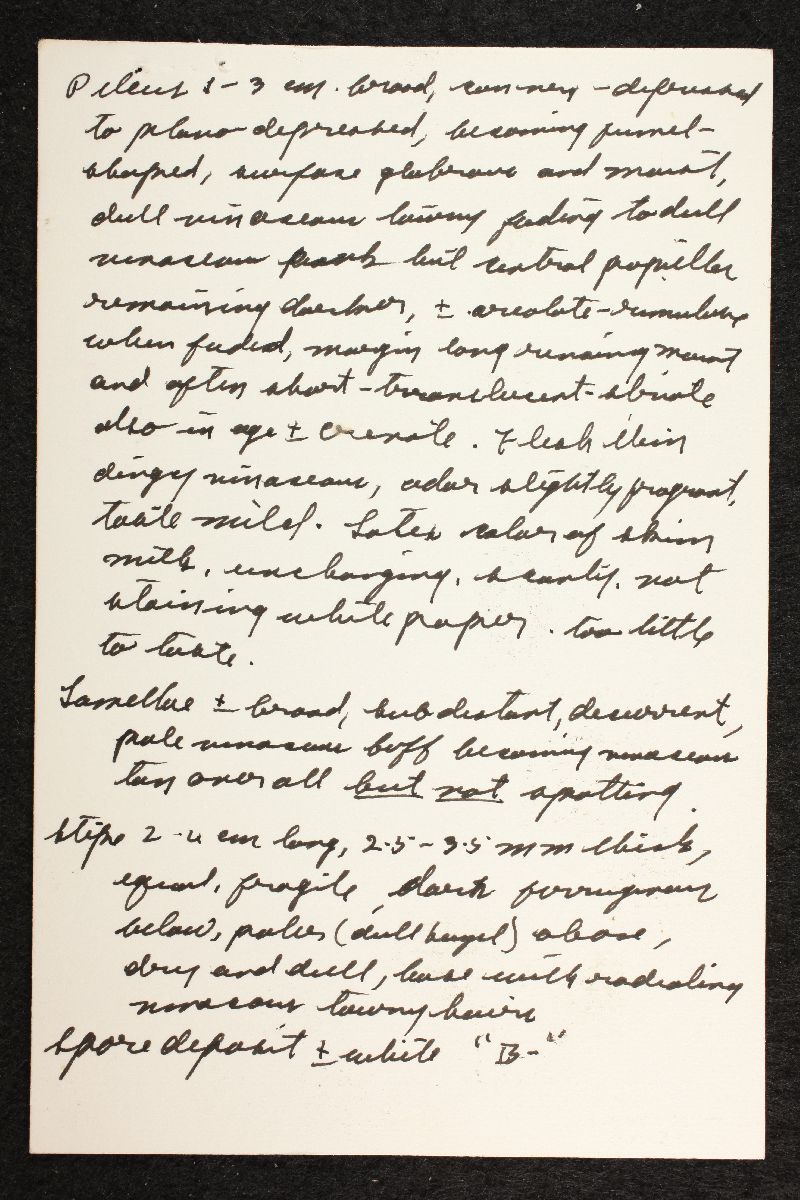 Pileus 1-3 cm. broad, convex-depressed
to plano-depressed, becoming funnel-
shaped, surface glabrous and moist,
dull vinaceous tawny fading to dull
vinaceous pink but central papilla
remaining darker, ± areolate-rimulose
when faded, margin long remaining moist
and often short-translucent-striate
also in age ± crenate. Flesh thin
dingy vinaceous, odor slightly fragrant,
taste mild. Latex color of skim
milk, unchanging, scanty, not
staining white paper. too little
to taste.
Lamellae ± broad, subdistant, decurrent,
pale vinaceous buff becoming vinaceous
tan over all but not spotting.
Stipe 2-4 cm long, 2.5-3.5 mm thick,
equal, fragile, dark ferruginous
below, paler (dull hazel) above,
dry and dull, base with radiating
vinaceous tawny hairs
Spore deposit ± white "B-"